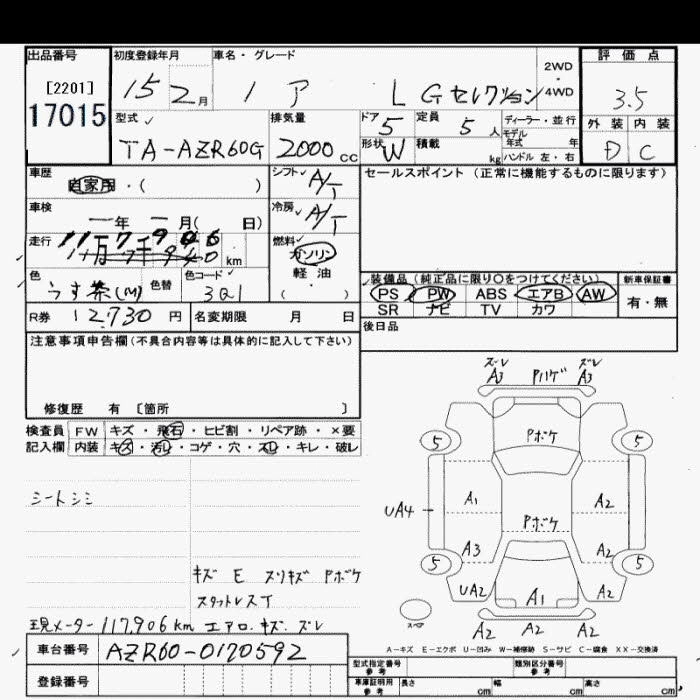 出品番号 初度登録年月 車名・グレード 評価点
[2201] 15 2月 ノア L Gセレクション 2WD ✓4WD 3.5
17015 外装 内装
型式✓ 排気量 ドア 5 定員 5人 ディーラー・並行 D C
TA-AZR60G 2000cc 形状 W 積載 kg モデル年式 年
ハンドル 左・右
車歴 シフト✓ A/T セールスポイント (正常に機能するものに限ります)
自家用・( )
車検 冷房✓ A/T
一年 一月( 日)
走行 11万7千906 km 燃料✓ ガソリン
軽油
( )
色 うす茶(M) 色替 色コード✓ 3Q1
装備品(純正品に限り○をつけてください) 新車保証書
PS PW ABS エアB AW 有・無
SR ナビ TV カワ
R券 12,730円 名変期限 月 日
後日品
注意事項申告欄(不具合内容等は具体的に記入して下さい)
修復歴 有 〔箇所 〕
検査員 FW キズ・飛石・ヒビ割・リペア跡・×要
記入欄 内装 キズ・汚れ・コゲ・穴・スレ・キレ・破レ
シートシミ
キズ E スリキズ Pボケ
スタットレスT
現メーター117,906km エアロ.キズ.ズレ
ズレ ズレ
A3 Pハゲ A3
Pボケ
5 5
A1 A2
UA4 Pボケ
A3 A2
5 5
UA2 A1 A2
スペア A2 A2 A2
A-キズ E-エクボ U-凹み W-補修跡 S-サビ C-腐食 XX-交換済
車台番号 AZR60-0170592
登録番号
型式指定番号 参考 類別区分番号 参考
車庫証明用 参考 長さ cm 幅 cm 高さ cm